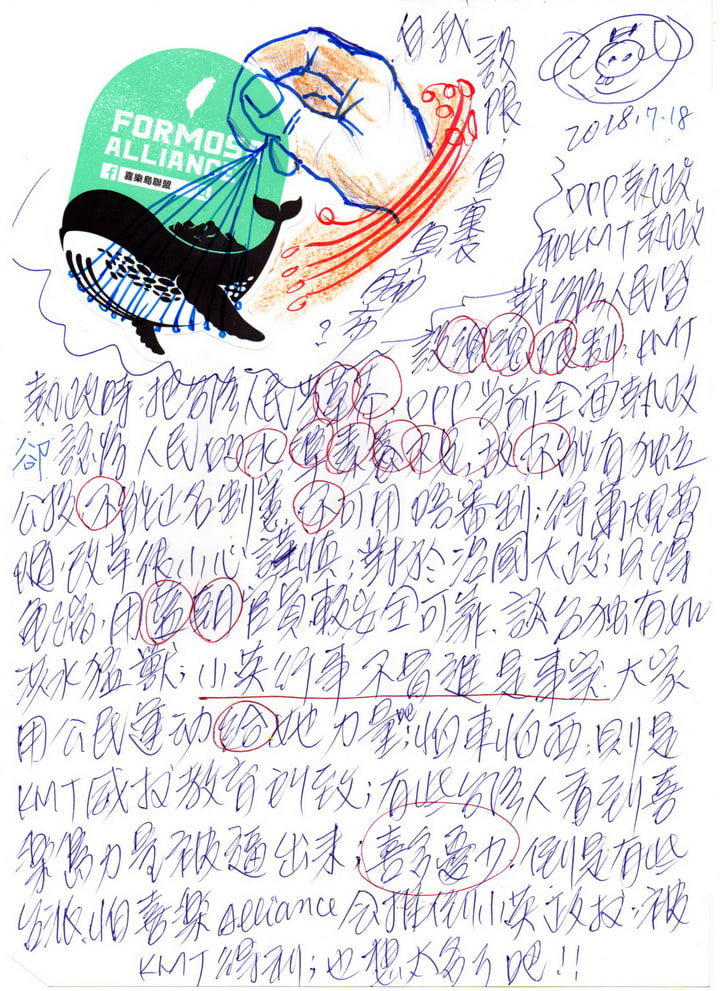 自我設限,自裹
身動
?
2018.7.18
FORMOSA
ALLIANCE
喜樂島聯盟
DPP執政
和KMT執政
對台灣人民皆
設 限制;KMT
執政時,把台灣人民當 DPP當前全面執政
卻認為人民的水準素養不足,故不能有独立
公投不能正名制憲,不可用 審制;得蕭規曹
隨,改革很小心謹慎;對於治國大政,只得
用藍朝官員較安全可靠,談台独有如
洪水猛獸;小英行事不冒進是事实.大家
用公民運动給她力量吧;怕東怕西,則是
KMT威权教育所致;有些台湾人看到喜
樂島力量被逼出來,喜多憂少;倒是有些
台派怕喜樂Alliance会推倒小英政权;被
KMT得利;也想太多了吧!!